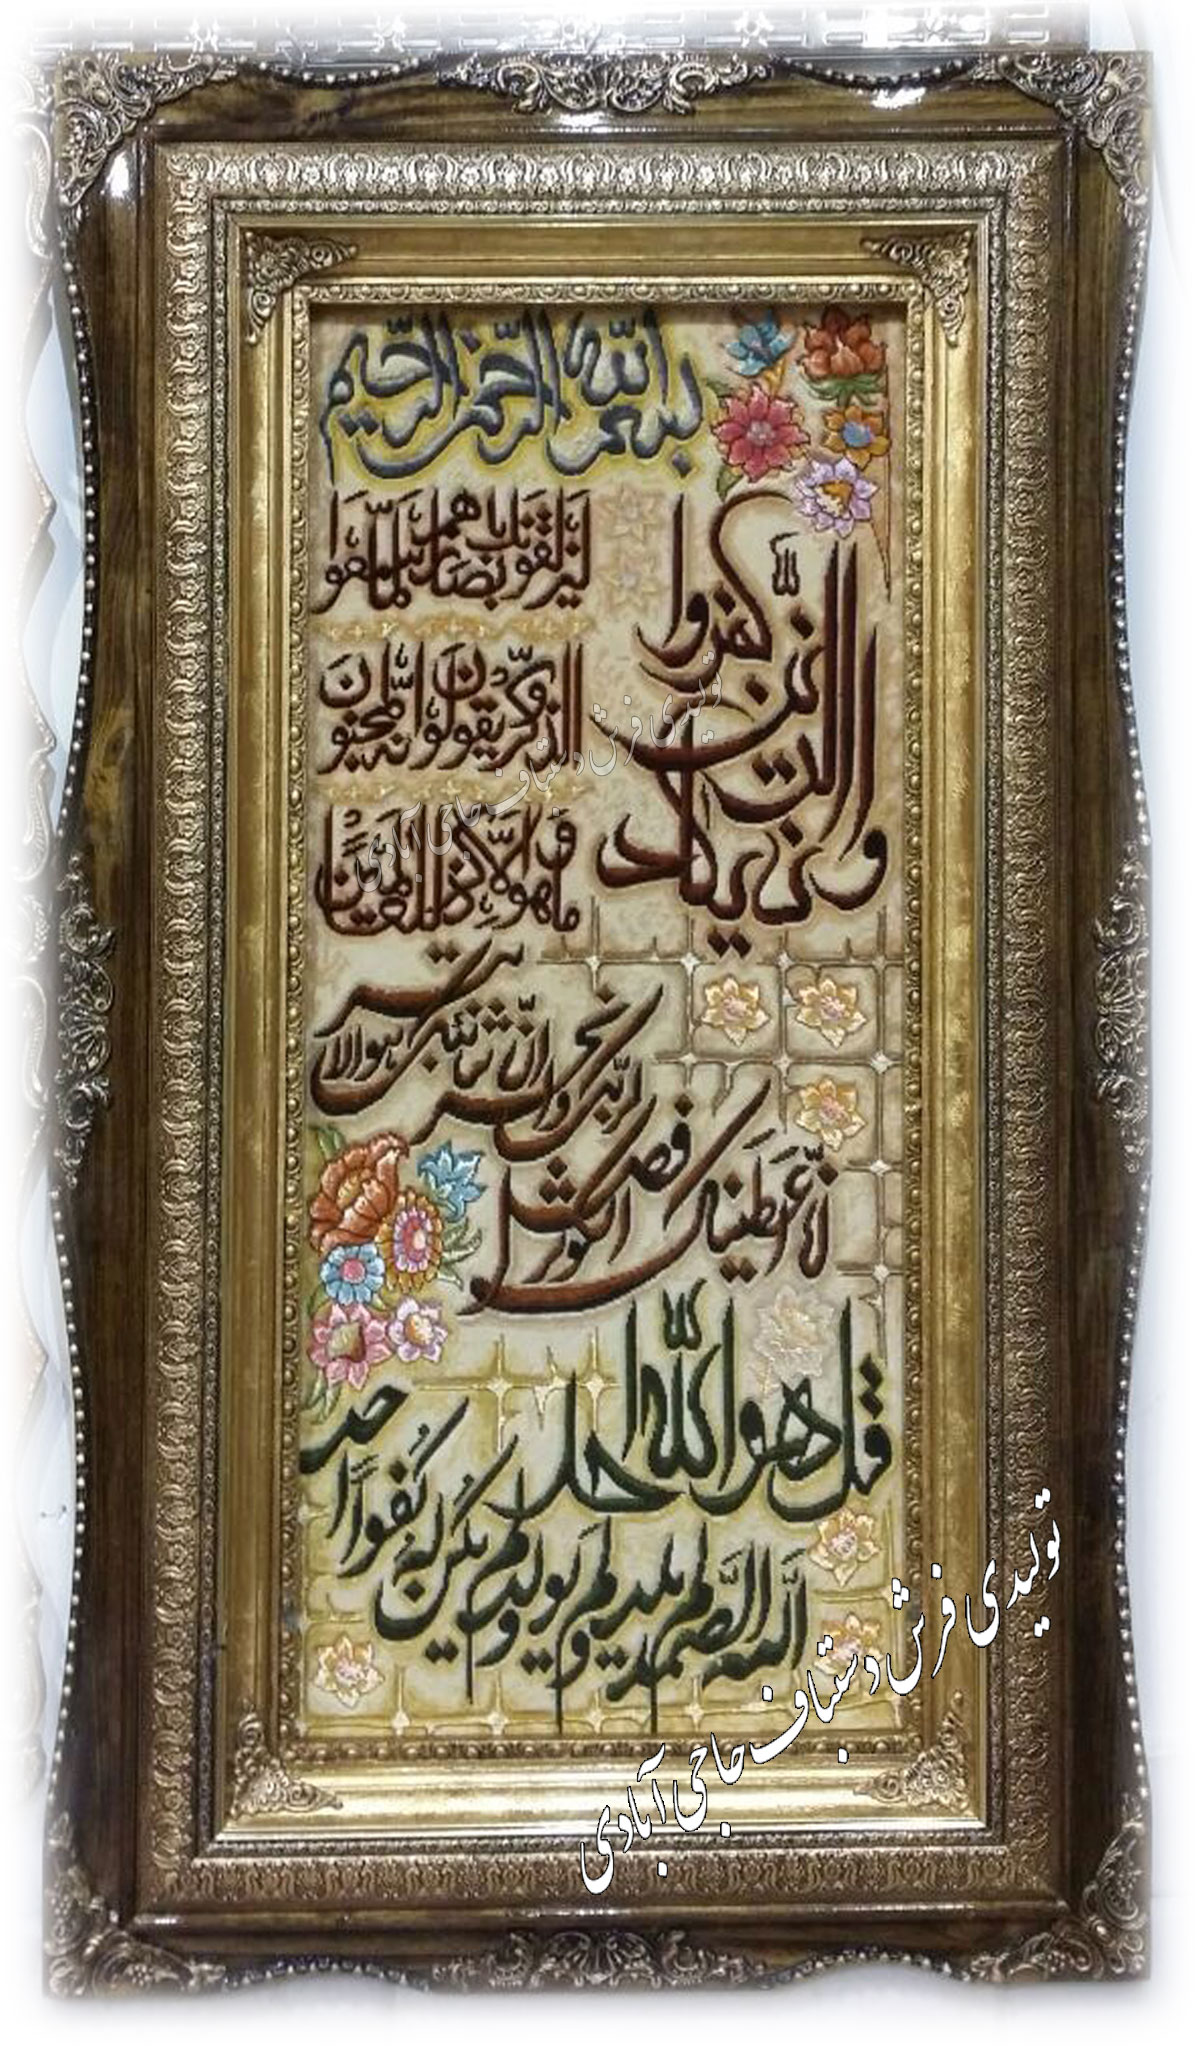 بسم الله الرحمن الرحیم
وان یکاد الذین کفروا
لیزلقونک بابصارهم لما سمعوا
الذکر ویقولون انه لمجنون
وما هو الا ذکر للعالمین
انا اعطیناک الکوثر فصل
لربک وانحر ان شانئک هو الابتر
قل هو الله احد
الله الصمد لم یلد ولم یولد ولم یکن له کفوا احد
تولیدی فرش دستباف حاجی آبادی
تولیدی فرش دستباف حاجی آبادی